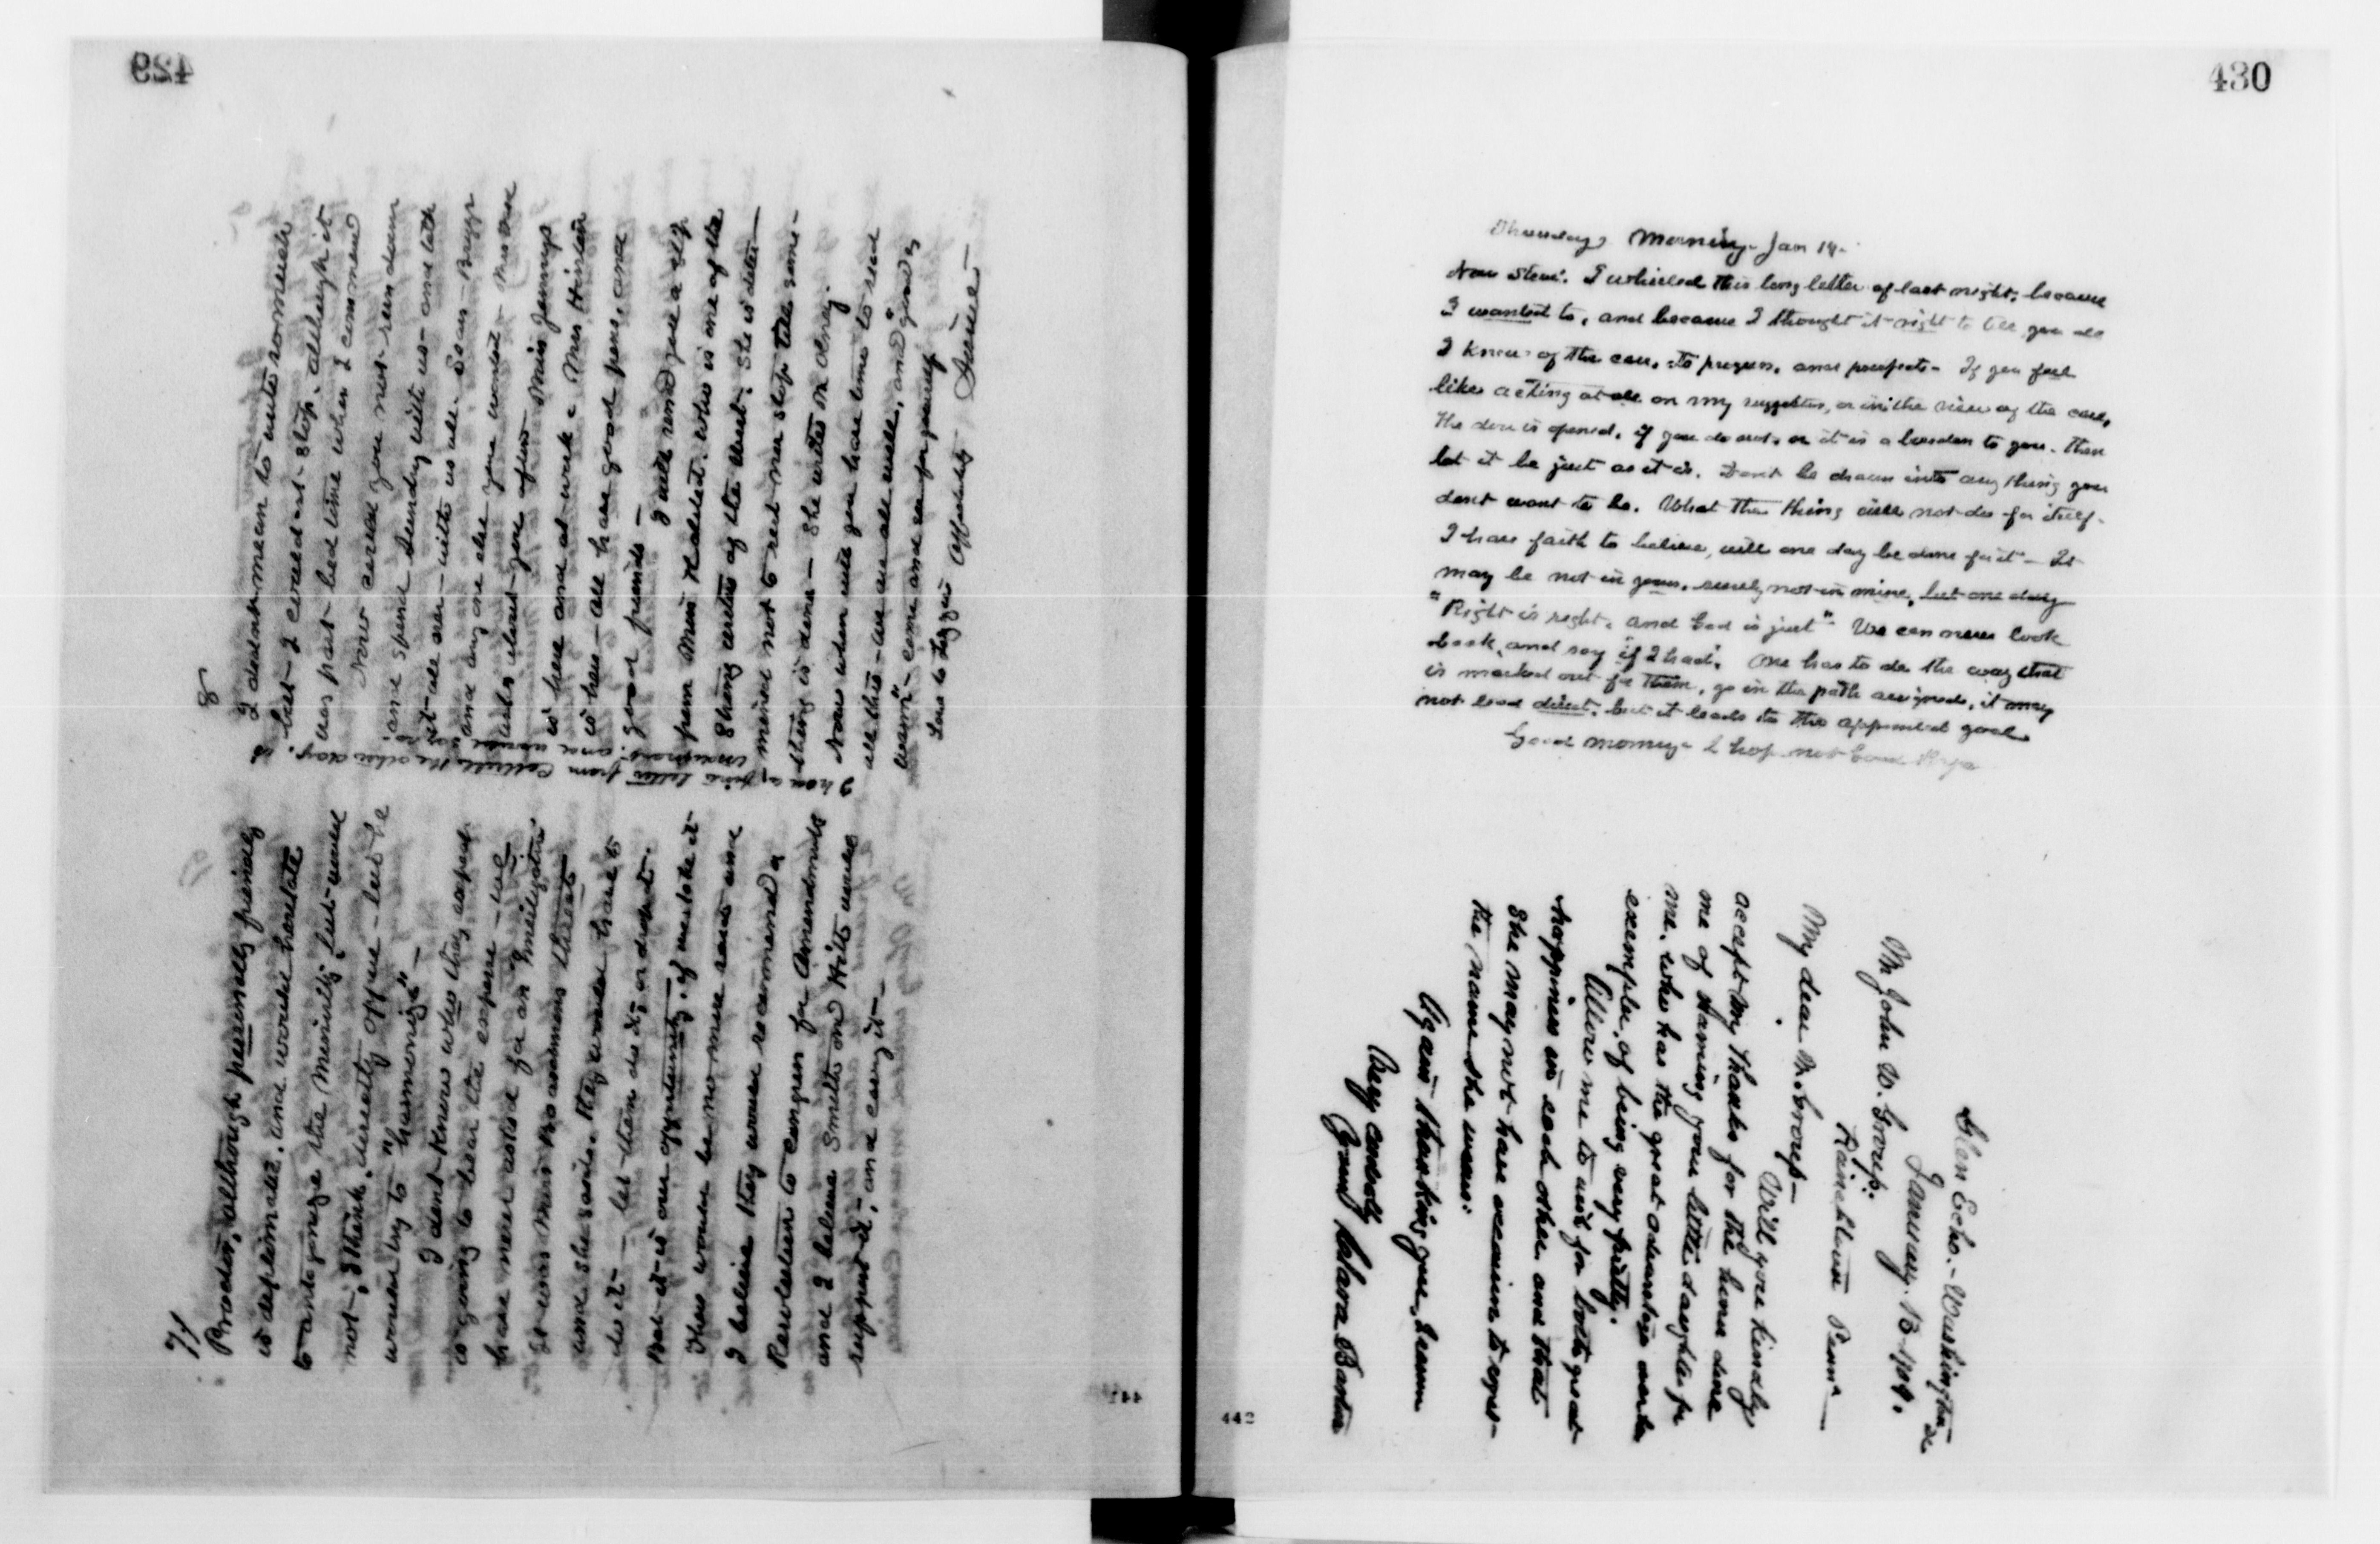 429
7/
Broader, although personally friendly
is deplorable, and would hesitate
to antagonize the Minority, but would
not, I think, directly oppose - but he
would try to "harmonize" -
I dont know who they expect
is going to bear the expense - we
have never asked for an investigation
It was Miss Boardmans threat
and she said they would have to
do it - let them do it, or drop it.
But it is our opportunity, if we take it
There would be no more said and
I believe they would recommend a
Resolution to congress for Amendments
and I believe Smith and Hitt would
support it, and carry it -
8
I did not mean to write so much
but I could not stop, although it
was past bed time when I commenced
Now could you not run down
and spend Sunday with us - and talk
it all over - with us all - Bring
and any one else you wanted - Mrs
asks about you often Miss Jennings
is here and at work - Mrs Hinton
is here - all have good pens, and
good friends -
I will send you a slip
from Miss who is one of the
Strong writers of the west. She is deter-
mined not to rest nor stop till some-
thing is done - She writes me daily.
Now when will you have time to read
all this - we are all well, and "
warm" - come and see for yourself
Love to Lizzie Affectionately
I had a fine letter from the other day. is
430
Thursday Morning Jan 14.
Now Steve. I whirled this long letter of last night, because
I wanted to, and because I thought it right to tell you all
I knew of the case, its progress, and prospects - If you feel
like acting at all on my suggestion, or in the view of the case,
the door is opened, if you do not, or it is a burden to you, then
let it be just as it is. Dont be drawn into any thing you
dont want to be. What the thing will not do for itself
I have faith to believe, will one day be done for it - It
may be not in yours, surely not in mine, but one day
"Right is right, and God is just" We can never look
back, and say "if I had". One has to do the way that
is marked out for them, go in the path assigned, it may
not lead direct, but it leads to the appointed goal.
Good morning I hope not Good Bye
Glen Echo - Washington DC
January 13 1904.
Mr John W. Group.
Pennª
My dear Mr. Group -
Will you kindly
accept my thanks for the honor done
me of naming your little daughter for
me, who has the great advantage
example, of being very pretty.
Allow me to wish for both great
happiness in each other and that
She may not have occasion to regret
the name she wears.
Again thanking you, I remain
Very cordially
Yours Clara Barton
441
442